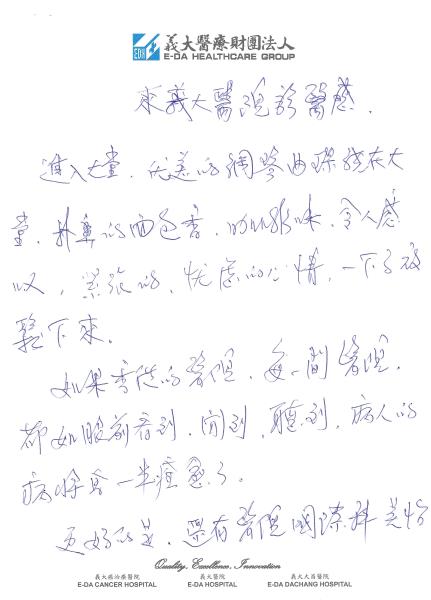 EDH
義大醫療財團法人
E-DA HEALTHCARE GROUP
來義大醫院診醫感.
進入大堂.優美的鋼琴曲環繞在大
堂.撲鼻的面包香.的咖啡味.令人感
叹,緊張的.忧虑的心情.一下子放
鬆下來.
如果香港的醫院.每一間醫院.
都如眼前看到.聞到.聽到.病人的
病情會一半痊愈了.
更好的是.還有醫院國際科美怡
Quality, Excellence, Innovation
義大癌治療醫院
E-DA CANCER HOSPITAL
義大醫院
E-DA HOSPITAL
義大大昌醫院
E-DA DACHANG HOSPITAL